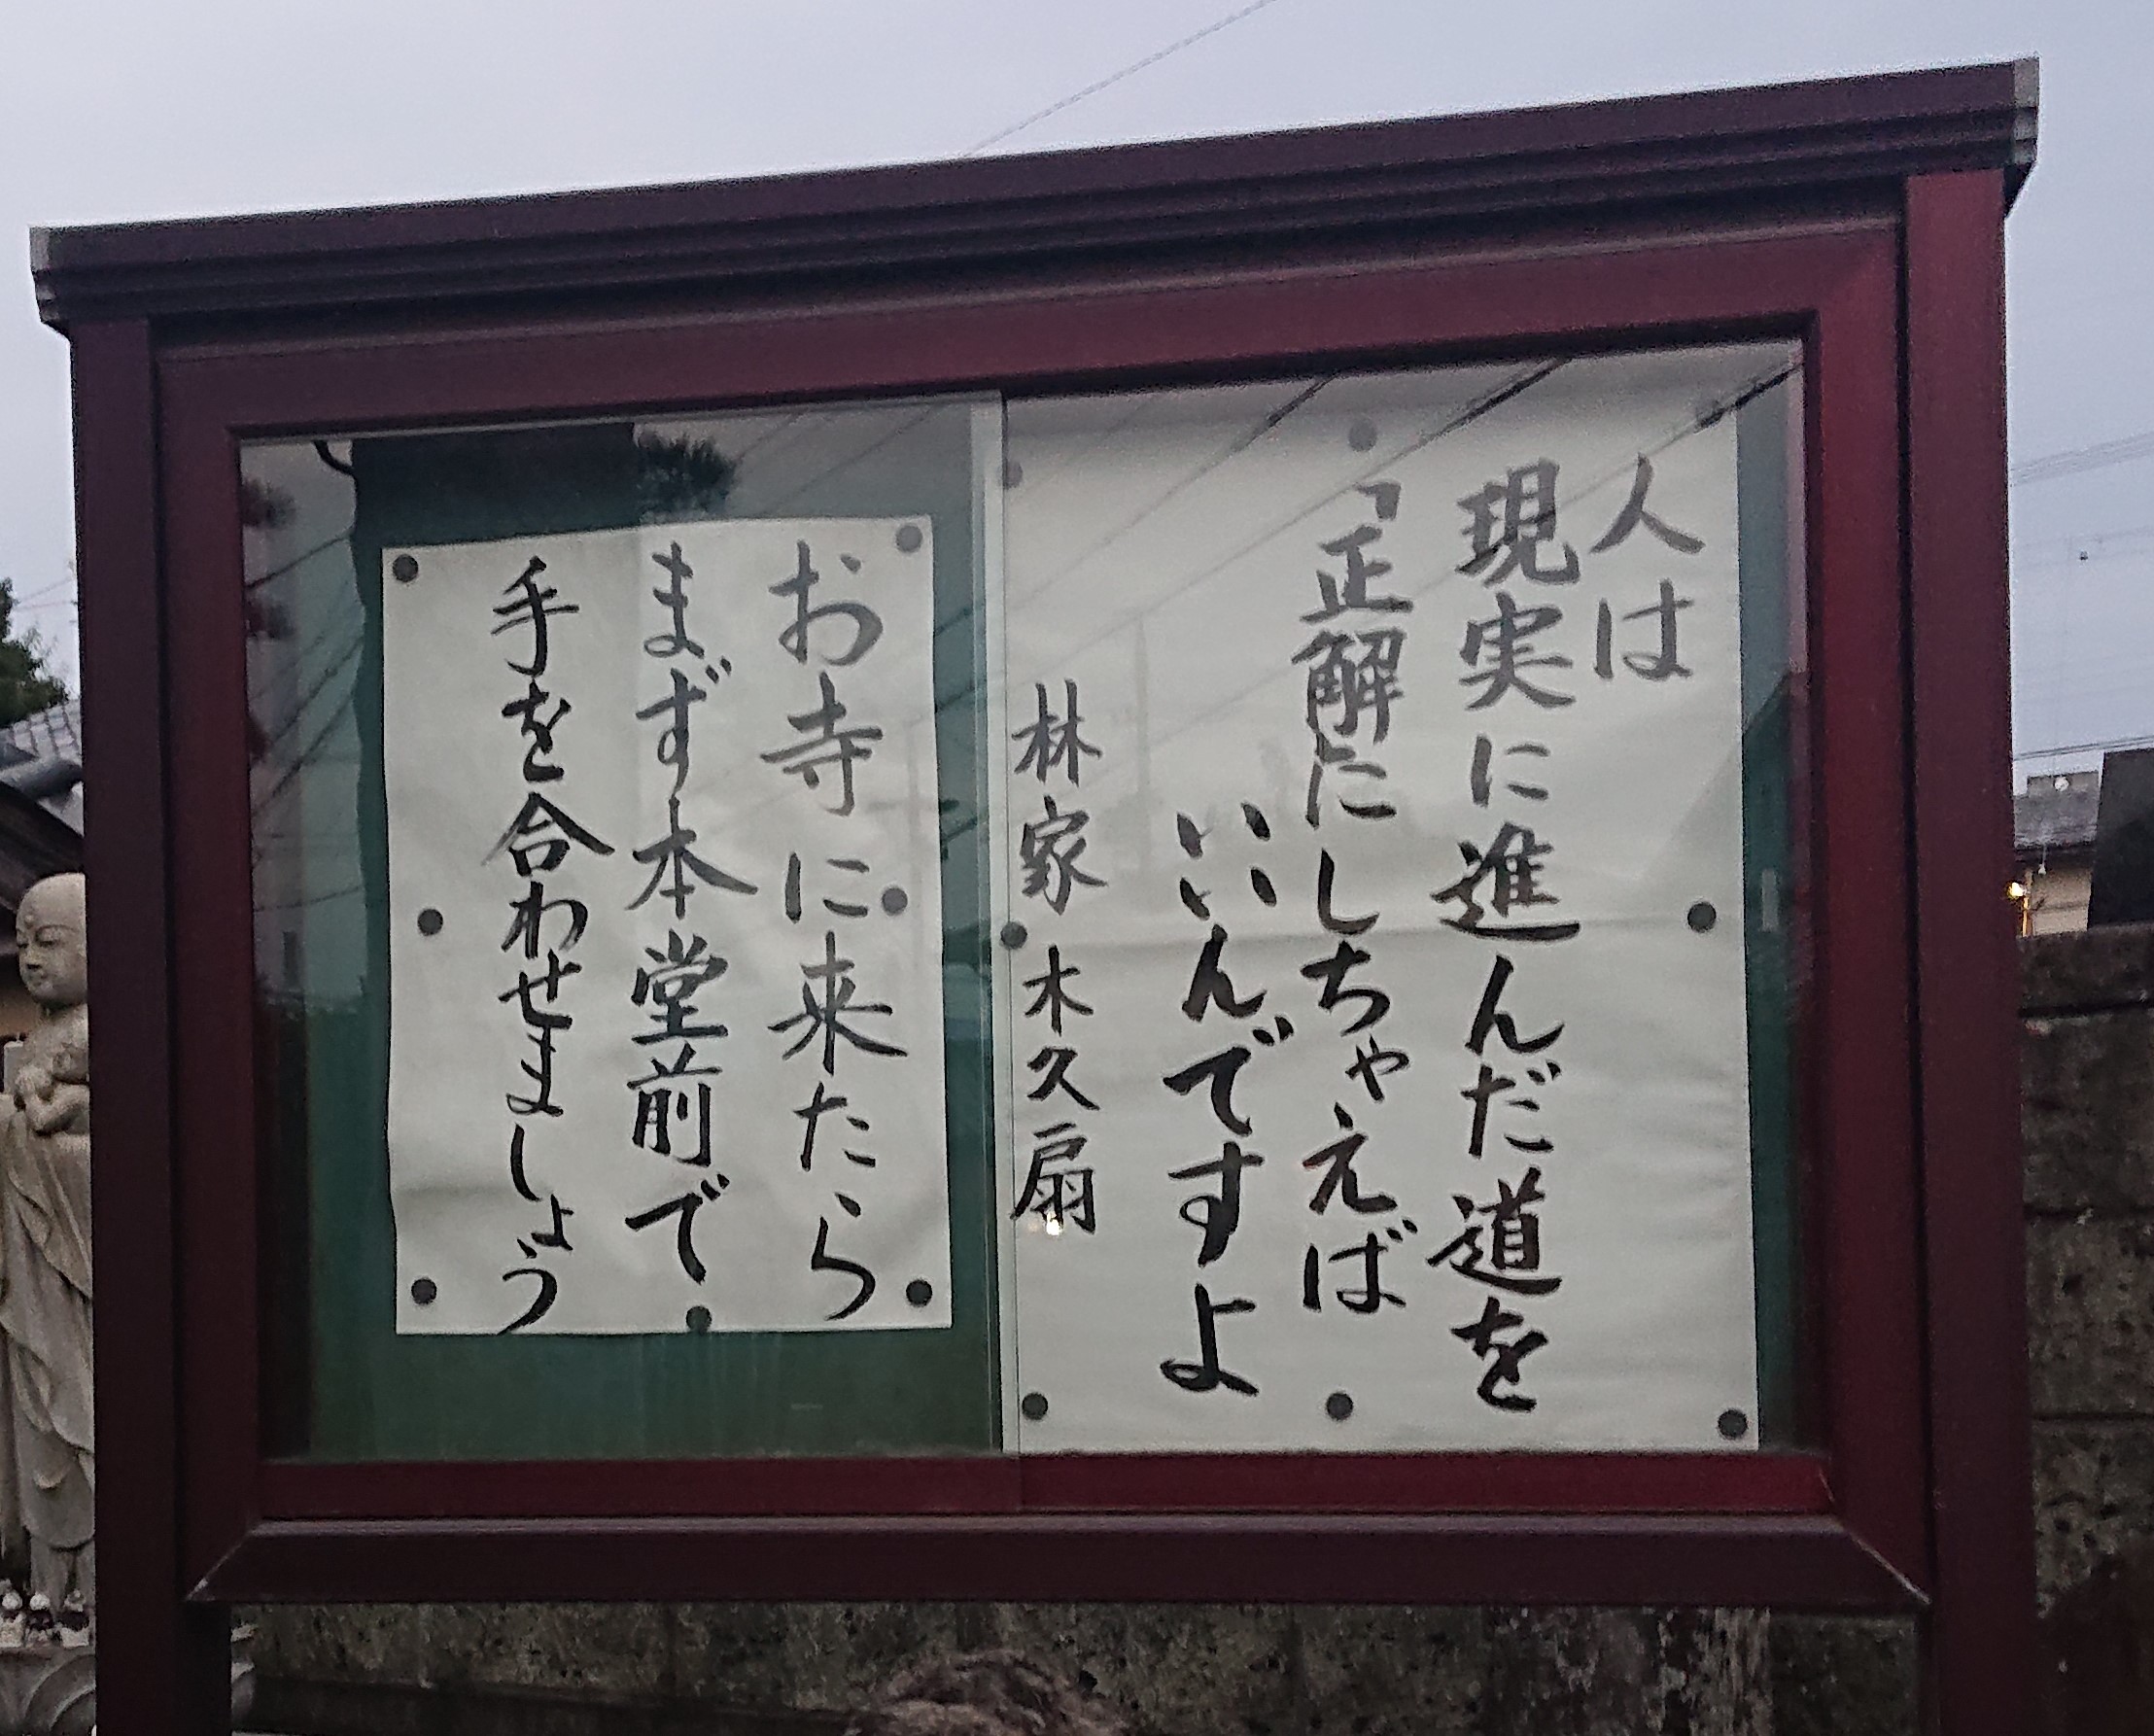 人は
現実に進んだ道を
「正解にしちゃえば
いいんですよ
林家 木久扇
お寺に来たら
まず本堂前で
手を合わせましょう